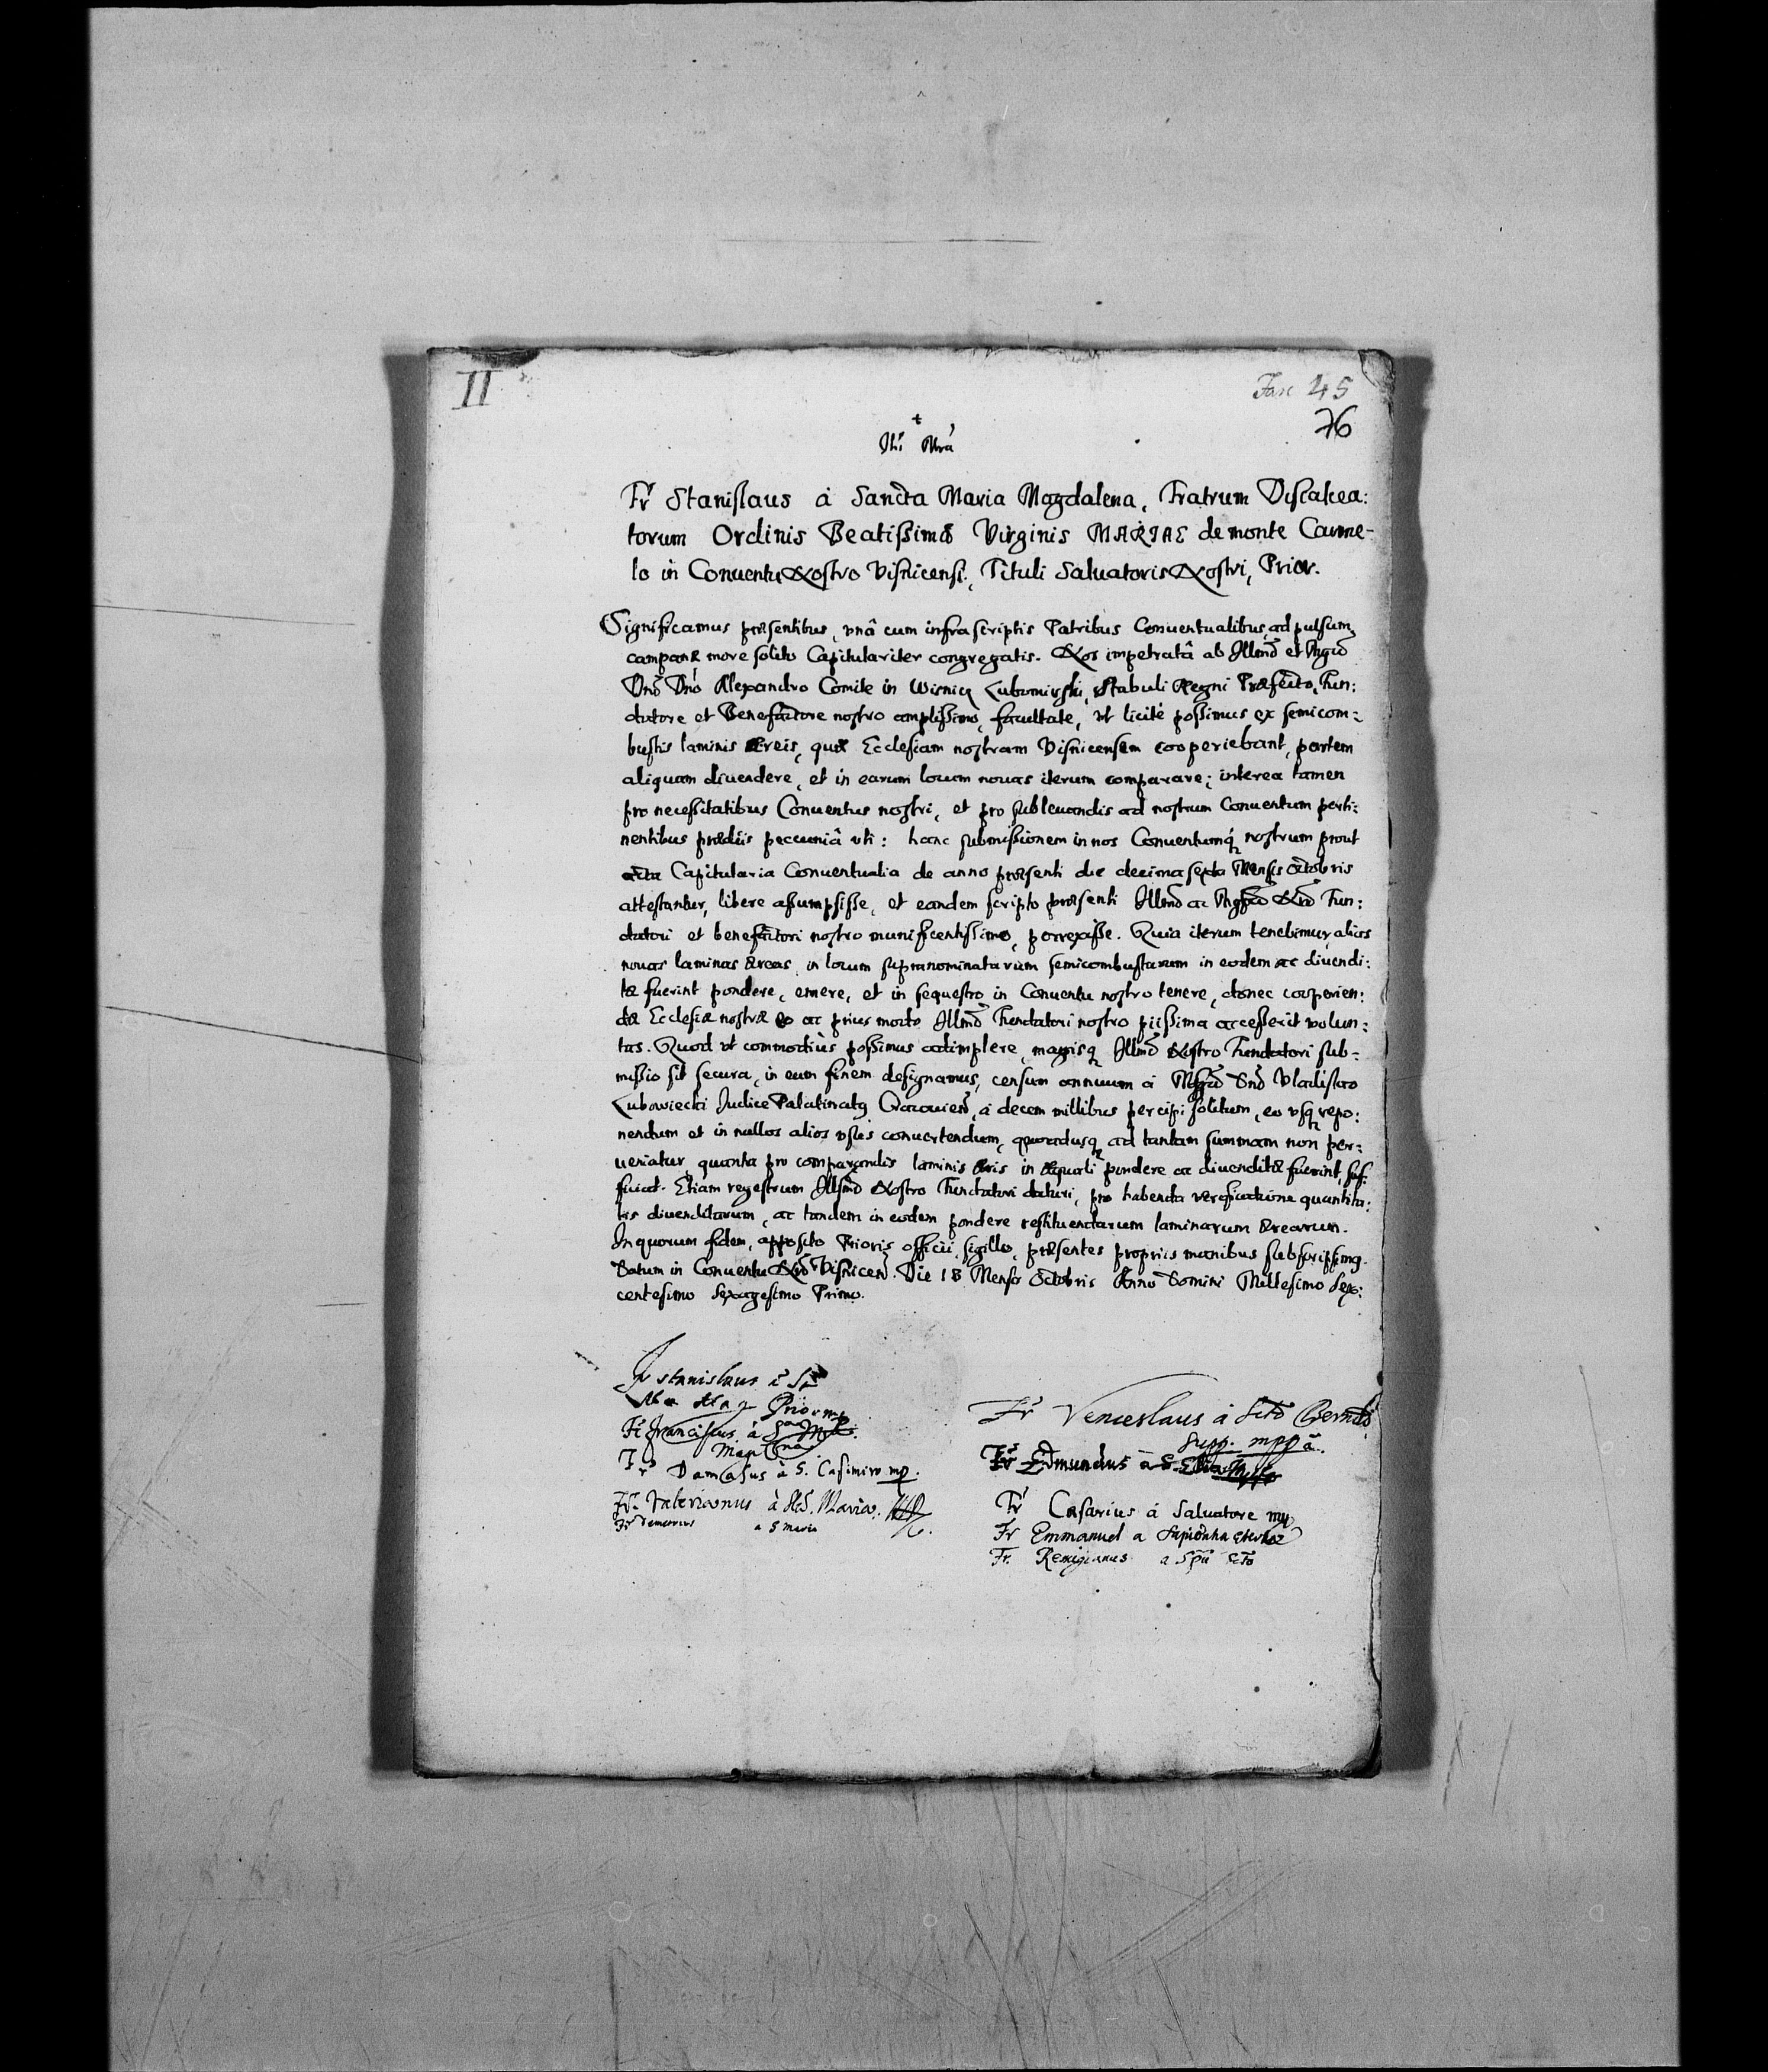 II
Fasc 45
76
+
Jhs Mra
Fr Stanislaus à Sancta Maria Magdalena, Fratrum Discalcea:
torum Ordinis Beatissimæ Virginis MARIAE de monte Carme-
lo in Conuentu Nostro Visnicensi, Tituli Saluatoris Nostri, Prior.
Significamus præsentibus, vnâ cum infrascriptis Patribus Conuentualibus, ad pulsum
campanæ more solito Capitulariter congregatis. Nos impetratâ ab Illmo et Mgco
Dno Dno Alexandro Comite in Wisnicz Lubomirski, Stabuli Regni Præfecto, Fun:
datore et Benefactore nostro amplissimo, facultate, vt licitè possimus ex semicom:
bustis laminis æreis, quæ Ecclesiam nostram Visnicensem cooperiebant, partem
aliquam diuendere, et in earum locum nouas iterum comparare; interea tamen
pro necessitatibus Conuentus nostri, et pro subleuandis ad nostrum Conuentum perti:
nentibus prædiis pecuniâ vti: hanc submissionem in nos Conuentumq nostrum prout
acta Capitularia Conuentualia de anno præsenti die decima sexta Mensis Octobris
attestantur, libere assumpsisse, et eandem scripto præsenti Illmo ac Mgfco Nro Fun:
datori et benefactori nostro munificentissimo, porrexisse. Quia iterum tenebimur, alias
nouas laminas æreas in locum supranominatarum semicombustarum in eodem ac diuendi:
tæ fuerint pondere, emere, et in sequestro in Conuentu nostro tenere, donec cooperien:
dæ Ecclesiæ nostræ eo ac prius modo Illmo Fundatori nostro piissima accesserit volun:
tas. Quod vt commodiùs possimus adimplere, magisq Illmo Nostro Fundatori sub-
missio sit secura, in eum finem designamus, censum annuum à Mgfco Dno Vladislao
Lubowiecki Judice Palatinatus Cracouien, à decem millibus percipi solitum, eo vsq repo:
nendum et in nullos alios vsus conuertendum, quoadusq ad tantam summam non per:
ueniatur, quanta pro comparandis laminis æris in æquali pondere ac diuenditæ fuerint, suf:
ficiat. Etiam regestrum Illsmo Nostro Fundatori daturi, pro habenda verificatione quantita:
tis diuenditarum, ac tandem in eodem pondere restituendarum laminarum ærearum.
In quorum fidem, apposito Prioris officii sigillo, præsentes propriis manibus subscripsimus.
Datum in Conuentu Nro Visnicen. Die 18 Mensis Octobris Anno Domini Millesimo Sex:
centesimo Sexagesimo Primo.
Fr Stanislaus à Sta
Ma Mag Prior mp
Fr Franciscus à
Fr Damasus à S. Casimiro mp.
Fr. Valerianus à Maria.
Fr a S Maria
Fr Venceslaus à Scto Bernardo
Supp. mppa.
Fr Edmundus à S. Elia
Fr Cæsarius à Saluatore mp
Fr Emmanuel a Sapientia Æterna
Fr. Remigianus a Spu Sto